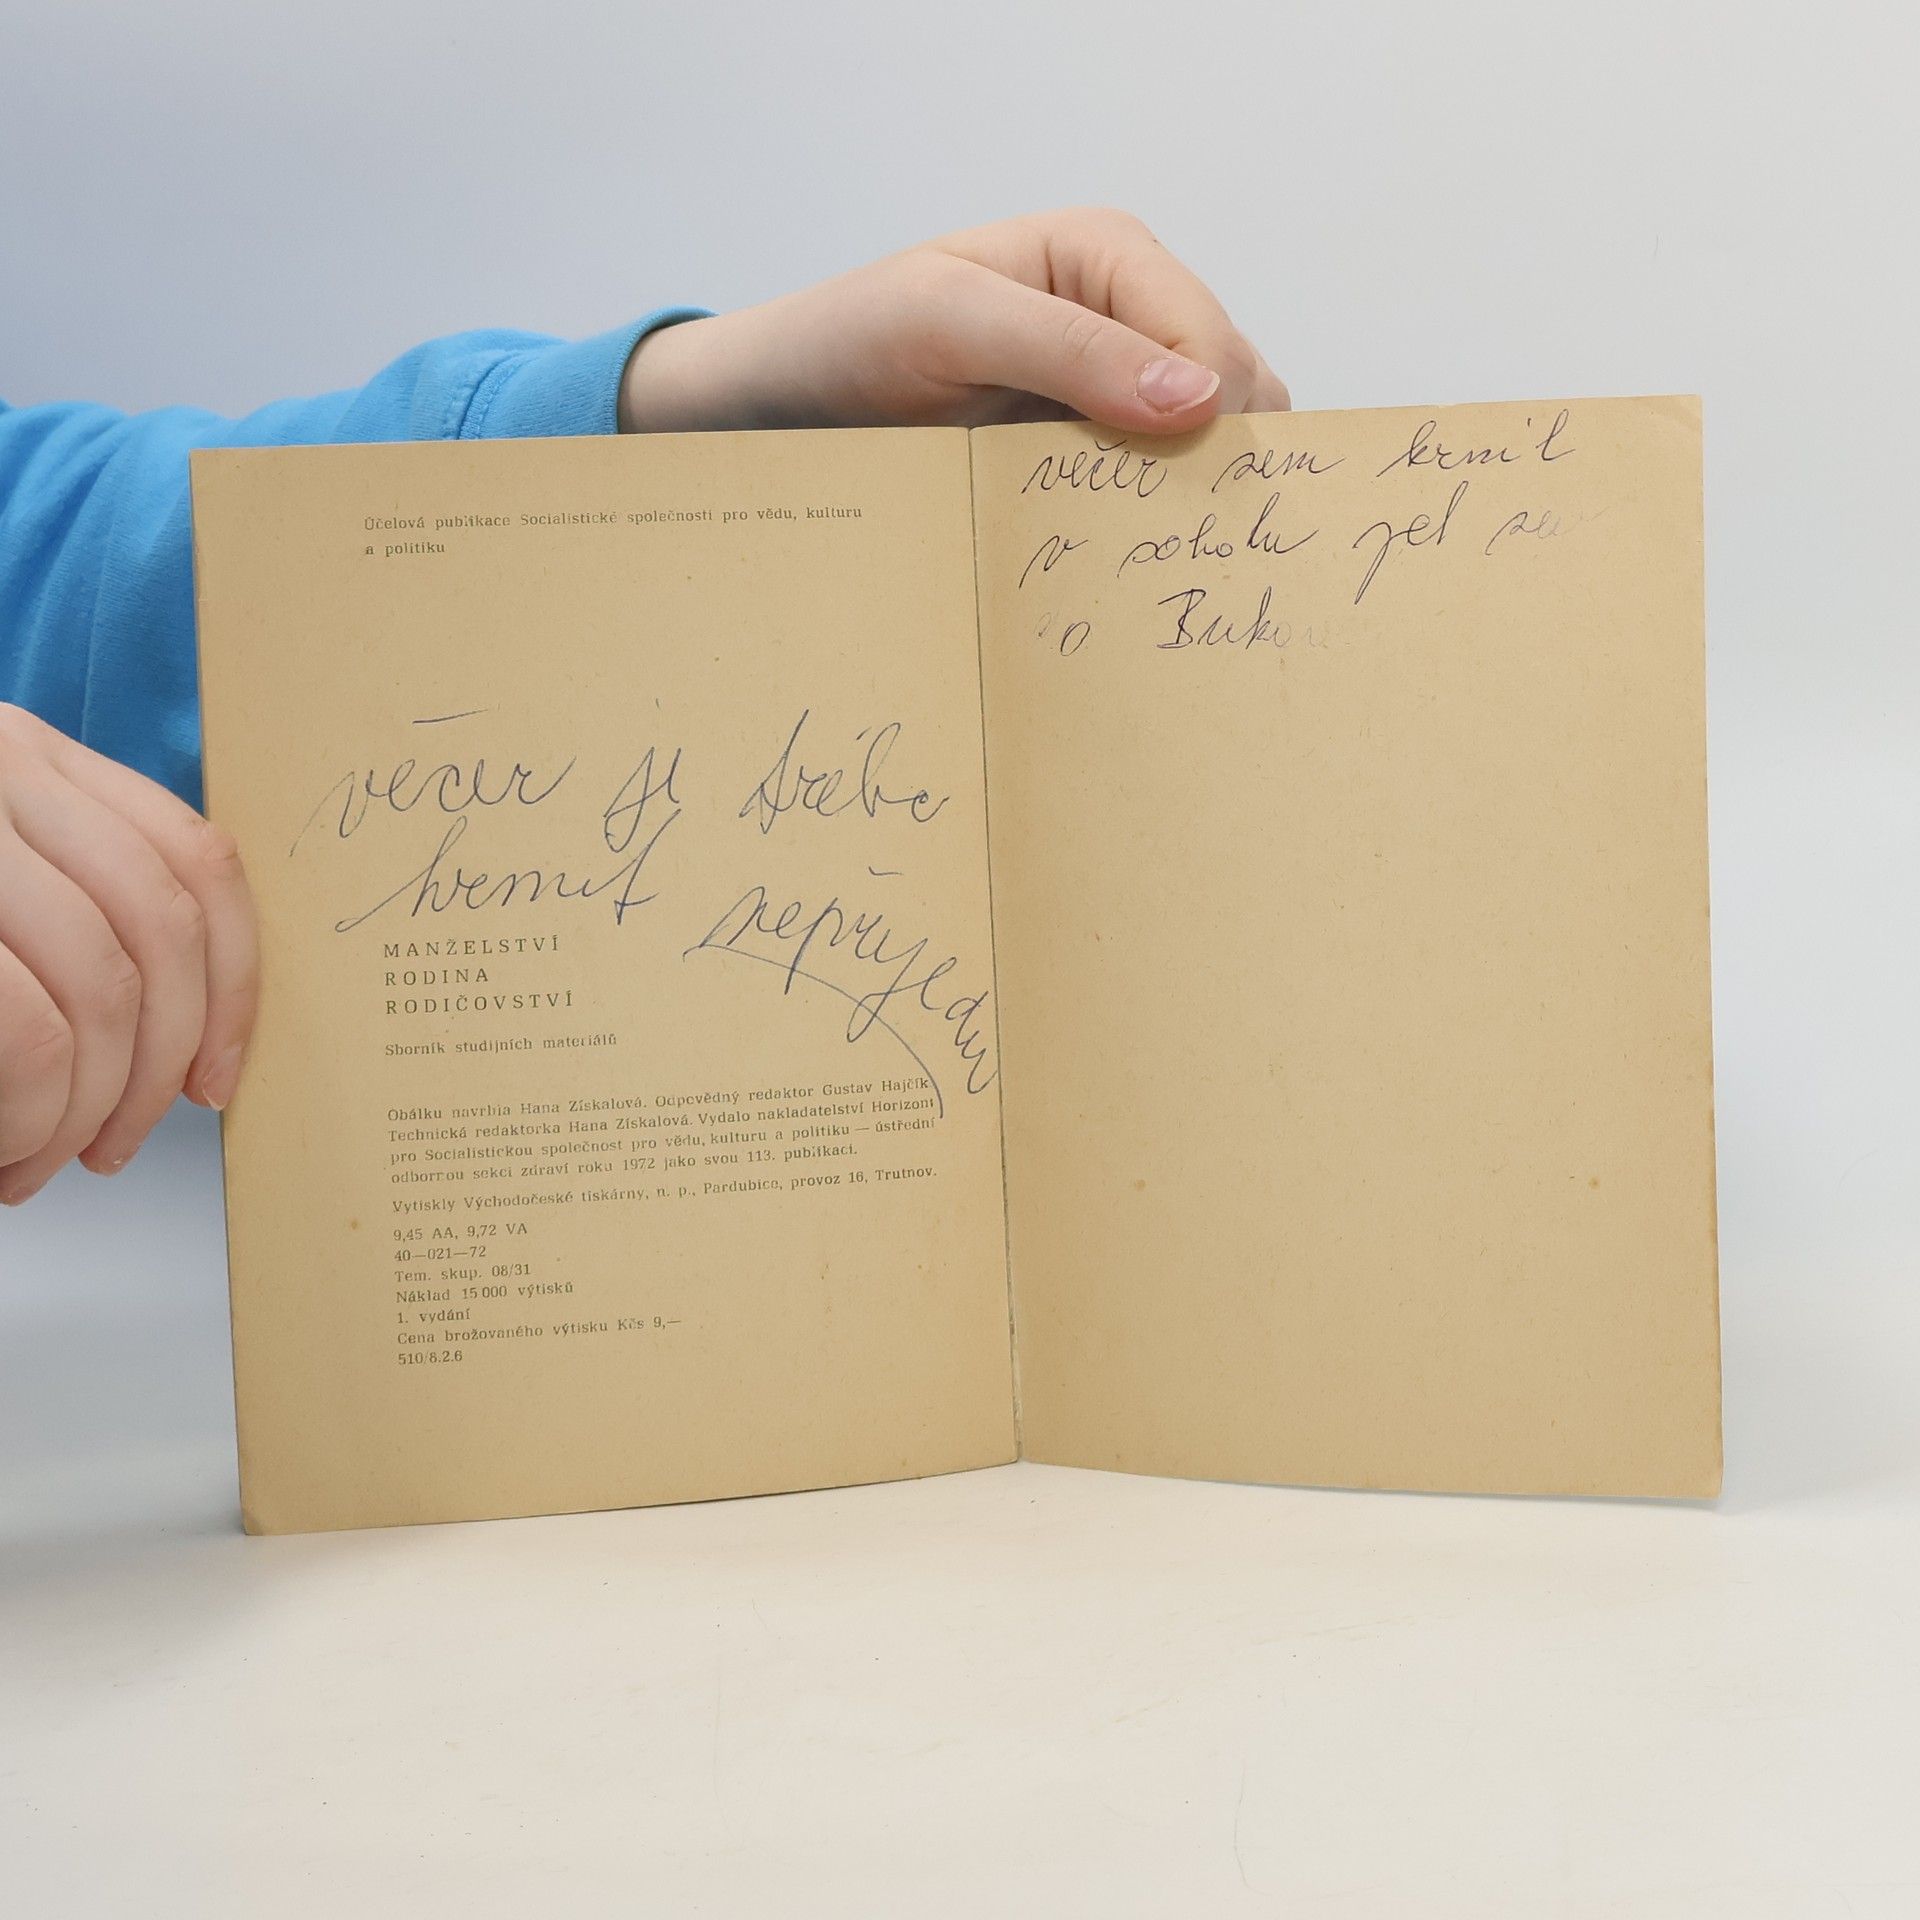 Účelová publikace Socialistické společnosti pro vědu, kulturu
a politiku
večer je třeba
krmit nepřijedu
MANŽELSTVÍ
RODINA
RODIČOVSTVÍ
Sborník studijních materiálů
Obálku navrhla Hana Získalová. Odpovědný redaktor Gustav Hajčík.
Technická redaktorka Hana Získalová. Vydalo nakladatelství Horizont
pro Socialistickou společnost pro vědu, kulturu a politiku — ústřední
odbornou sekci zdraví roku 1972 jako svou 113. publikaci.
Vytiskly Východočeské tiskárny, n. p., Pardubice, provoz 16, Trutnov.
9,45 AA, 9,72 VA
40—021—72
Tem. skup. 08/31
Náklad 15 000 výtisků
1. vydání
Cena brožovaného výtisku Kčs 9,—
510/8.2.6
večer sem krmil
v sobotu jel sem